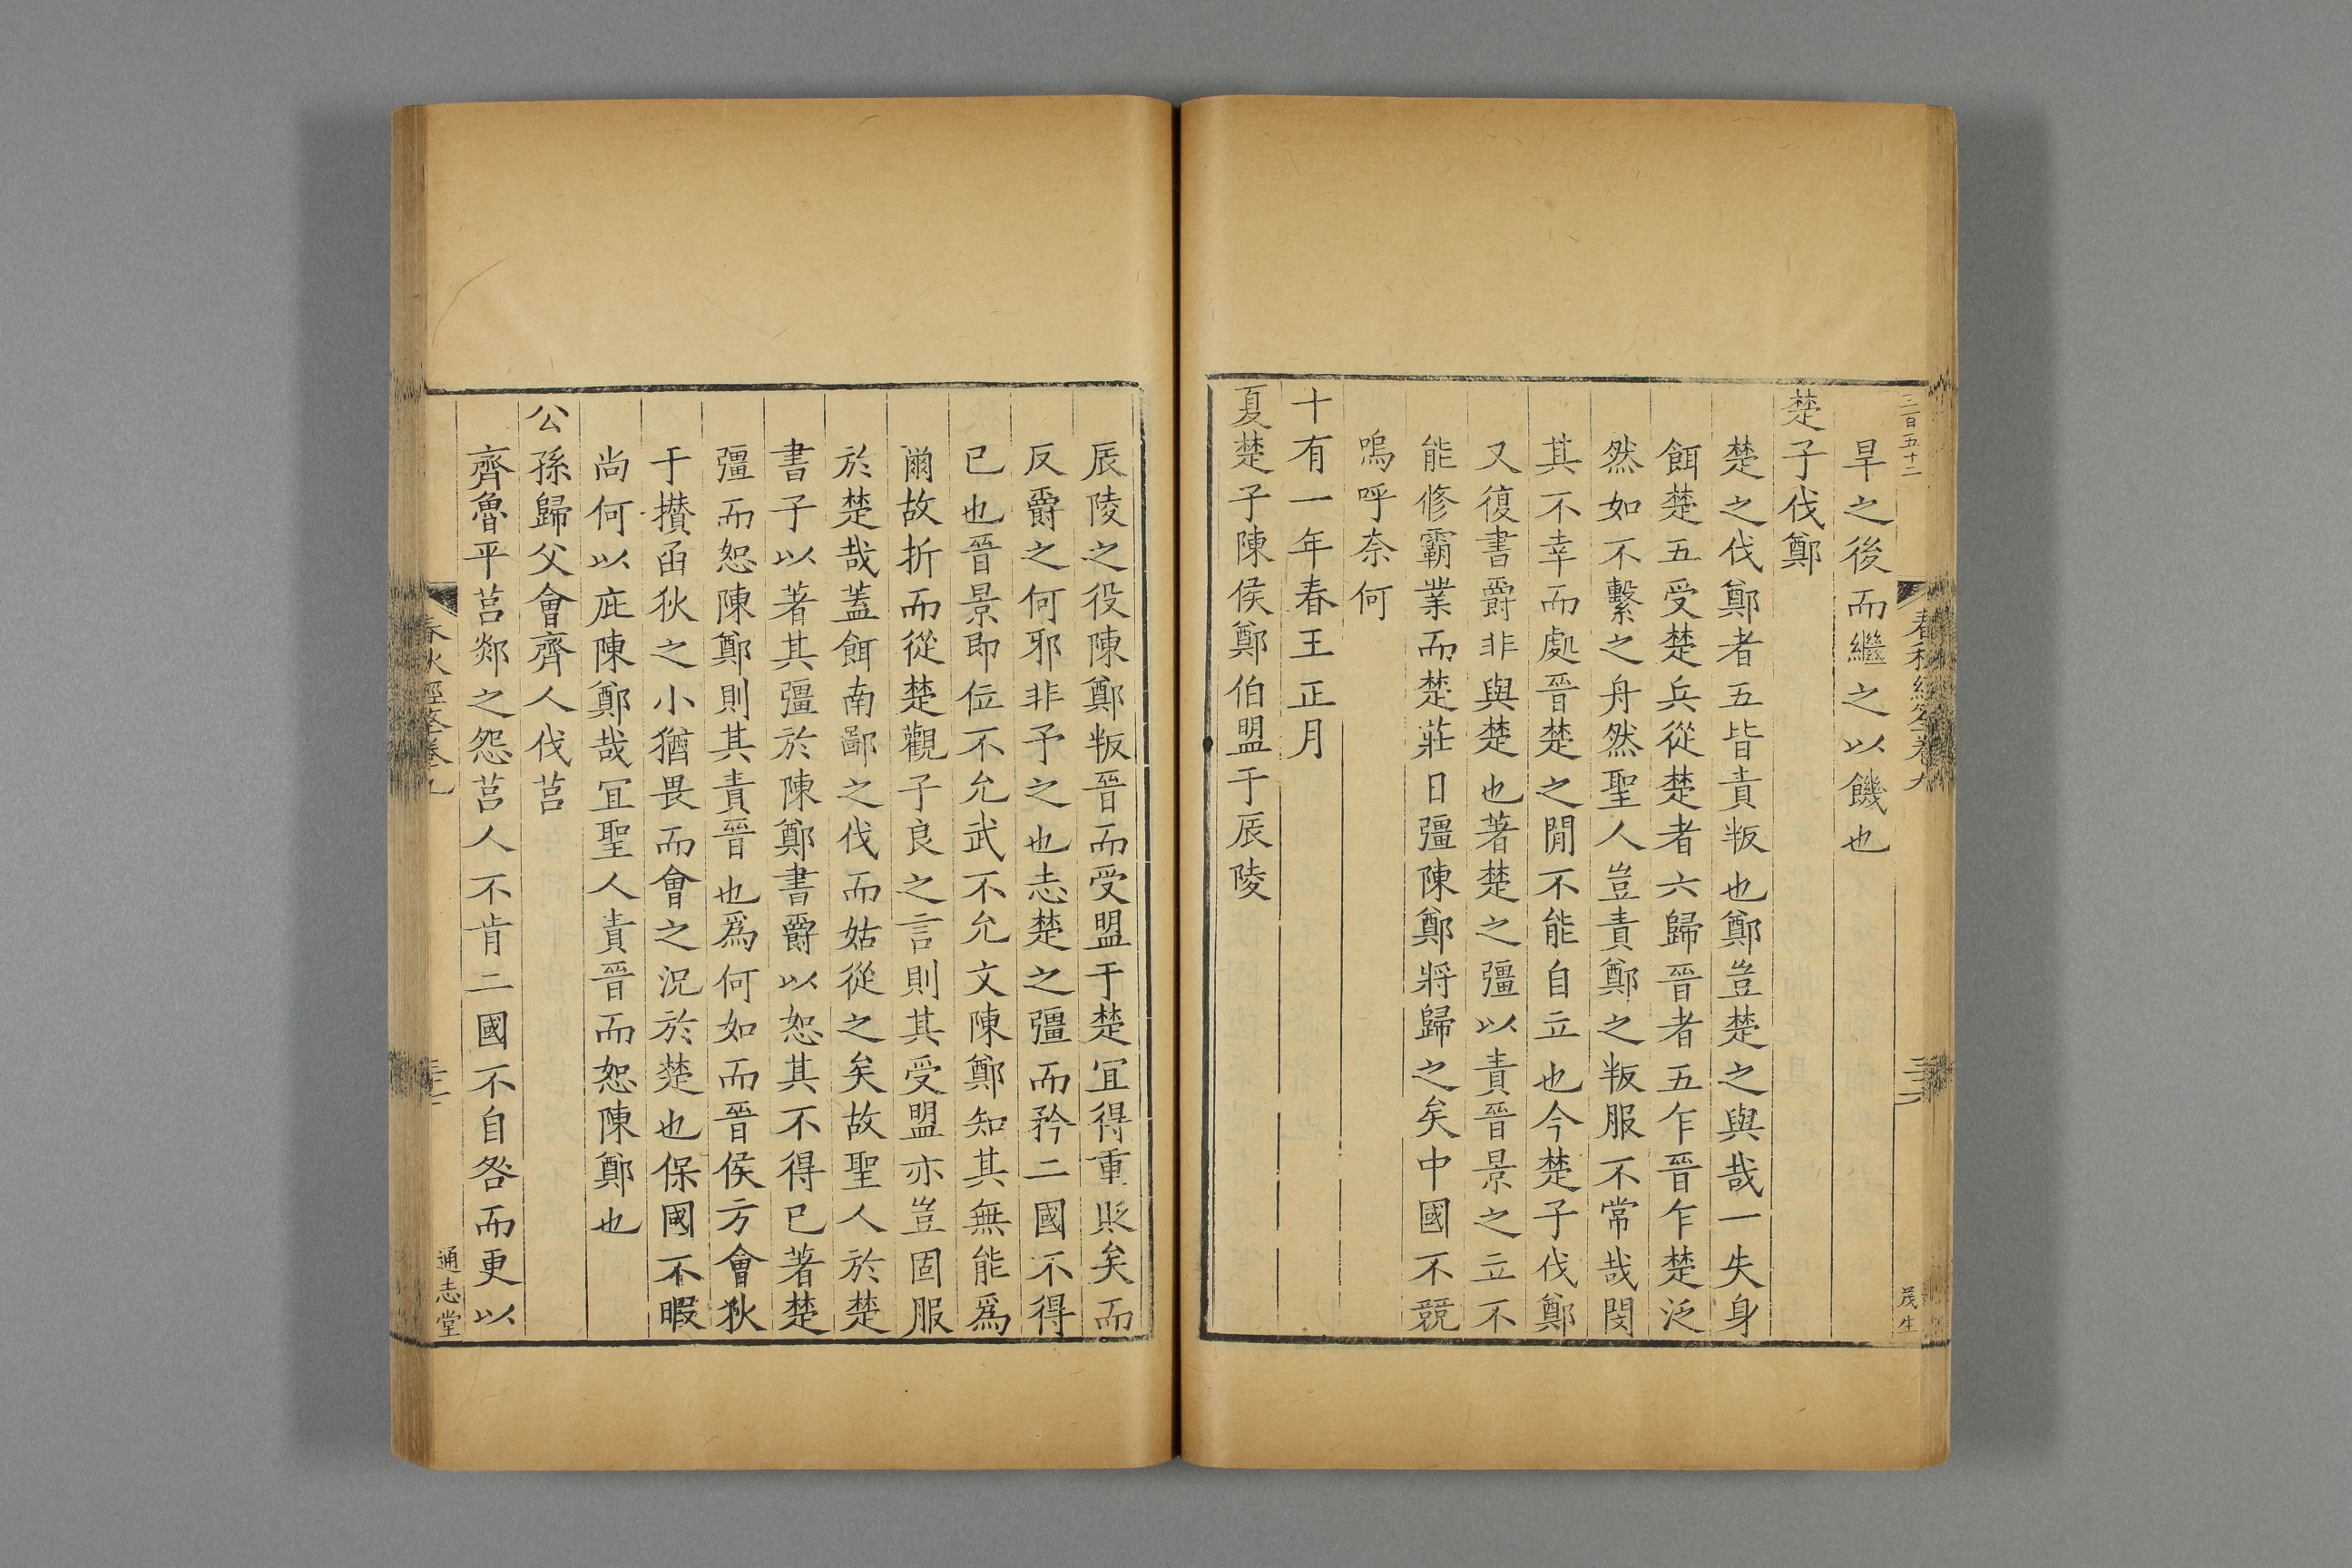 三百五十二
旱之後而繼之以饑也
楚子伐鄭
楚之伐鄭者五皆責叛也鄭豈楚之與哉一失身
餌楚五受楚兵從楚者六歸晉者五乍晉乍楚泛
然如不繫之舟然聖人豈責鄭之叛服不常哉閔
其不幸而處晉楚之閒不能自立也今楚子伐鄭
又復書爵非與楚也著楚之彊以責晉景之立不
能修霸業而楚莊日彊陳鄭將歸之矣中國不競
嗚呼奈何
十有一年春王正月
夏楚子陳侯鄭伯盟于辰陵
茂生
辰陵之役陳鄭叛晉而受盟于楚宜得重貶矣而
反爵之何邪非予之也志楚之彊而矜二國不得
已也晉景即位不允武不允文陳鄭知其無能爲
爾故折而從楚觀子良之言則其受盟亦豈固服
於楚哉蓋餌南鄙之伐而姑從之矣故聖人於楚
書子以著其彊於陳鄭書爵以恕其不得已著楚
彊而恕陳鄭則其責晉也爲何如而晉侯方會狄
于攅函狄之小猶畏而會之況於楚也保國不暇
尚何以庇陳鄭哉宜聖人責晉而恕陳鄭也
公孫歸父會齊人伐莒
齊魯平莒郯之怨莒人不肯二國不自咎而更以
春秋經筌卷九
通志堂